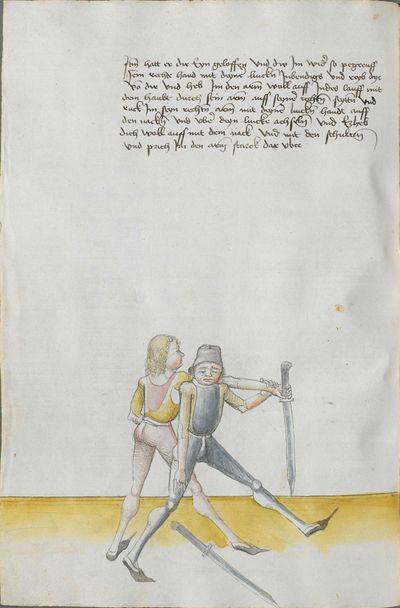 Itm hatt er dir Eyn geloffen und dir Im wider so pegreiff
Sein rechte hand mit deyner lincken Inbendigs und reyb die
von dir und heb Im den arm woll auff Indes lauff mit
dem haubt durch sein arm auff seyne rechten seyten und
ruck Im seyn rechten arm mit deyner lincken handt auff
den nacken und uber deyn lincke achseln und Erheb
dich woll auff mit dem nack und mit den schultern
und prich Im den arm starck dar uber